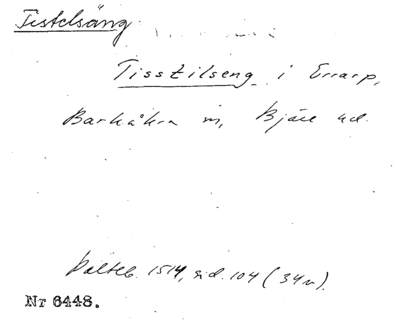 Tistelsäng
Tisstilseng i Errarp,
Barkåkra sn, Bjäre hd.
Palteb. 1514, sid. 104 (34v).
Nr 6448.